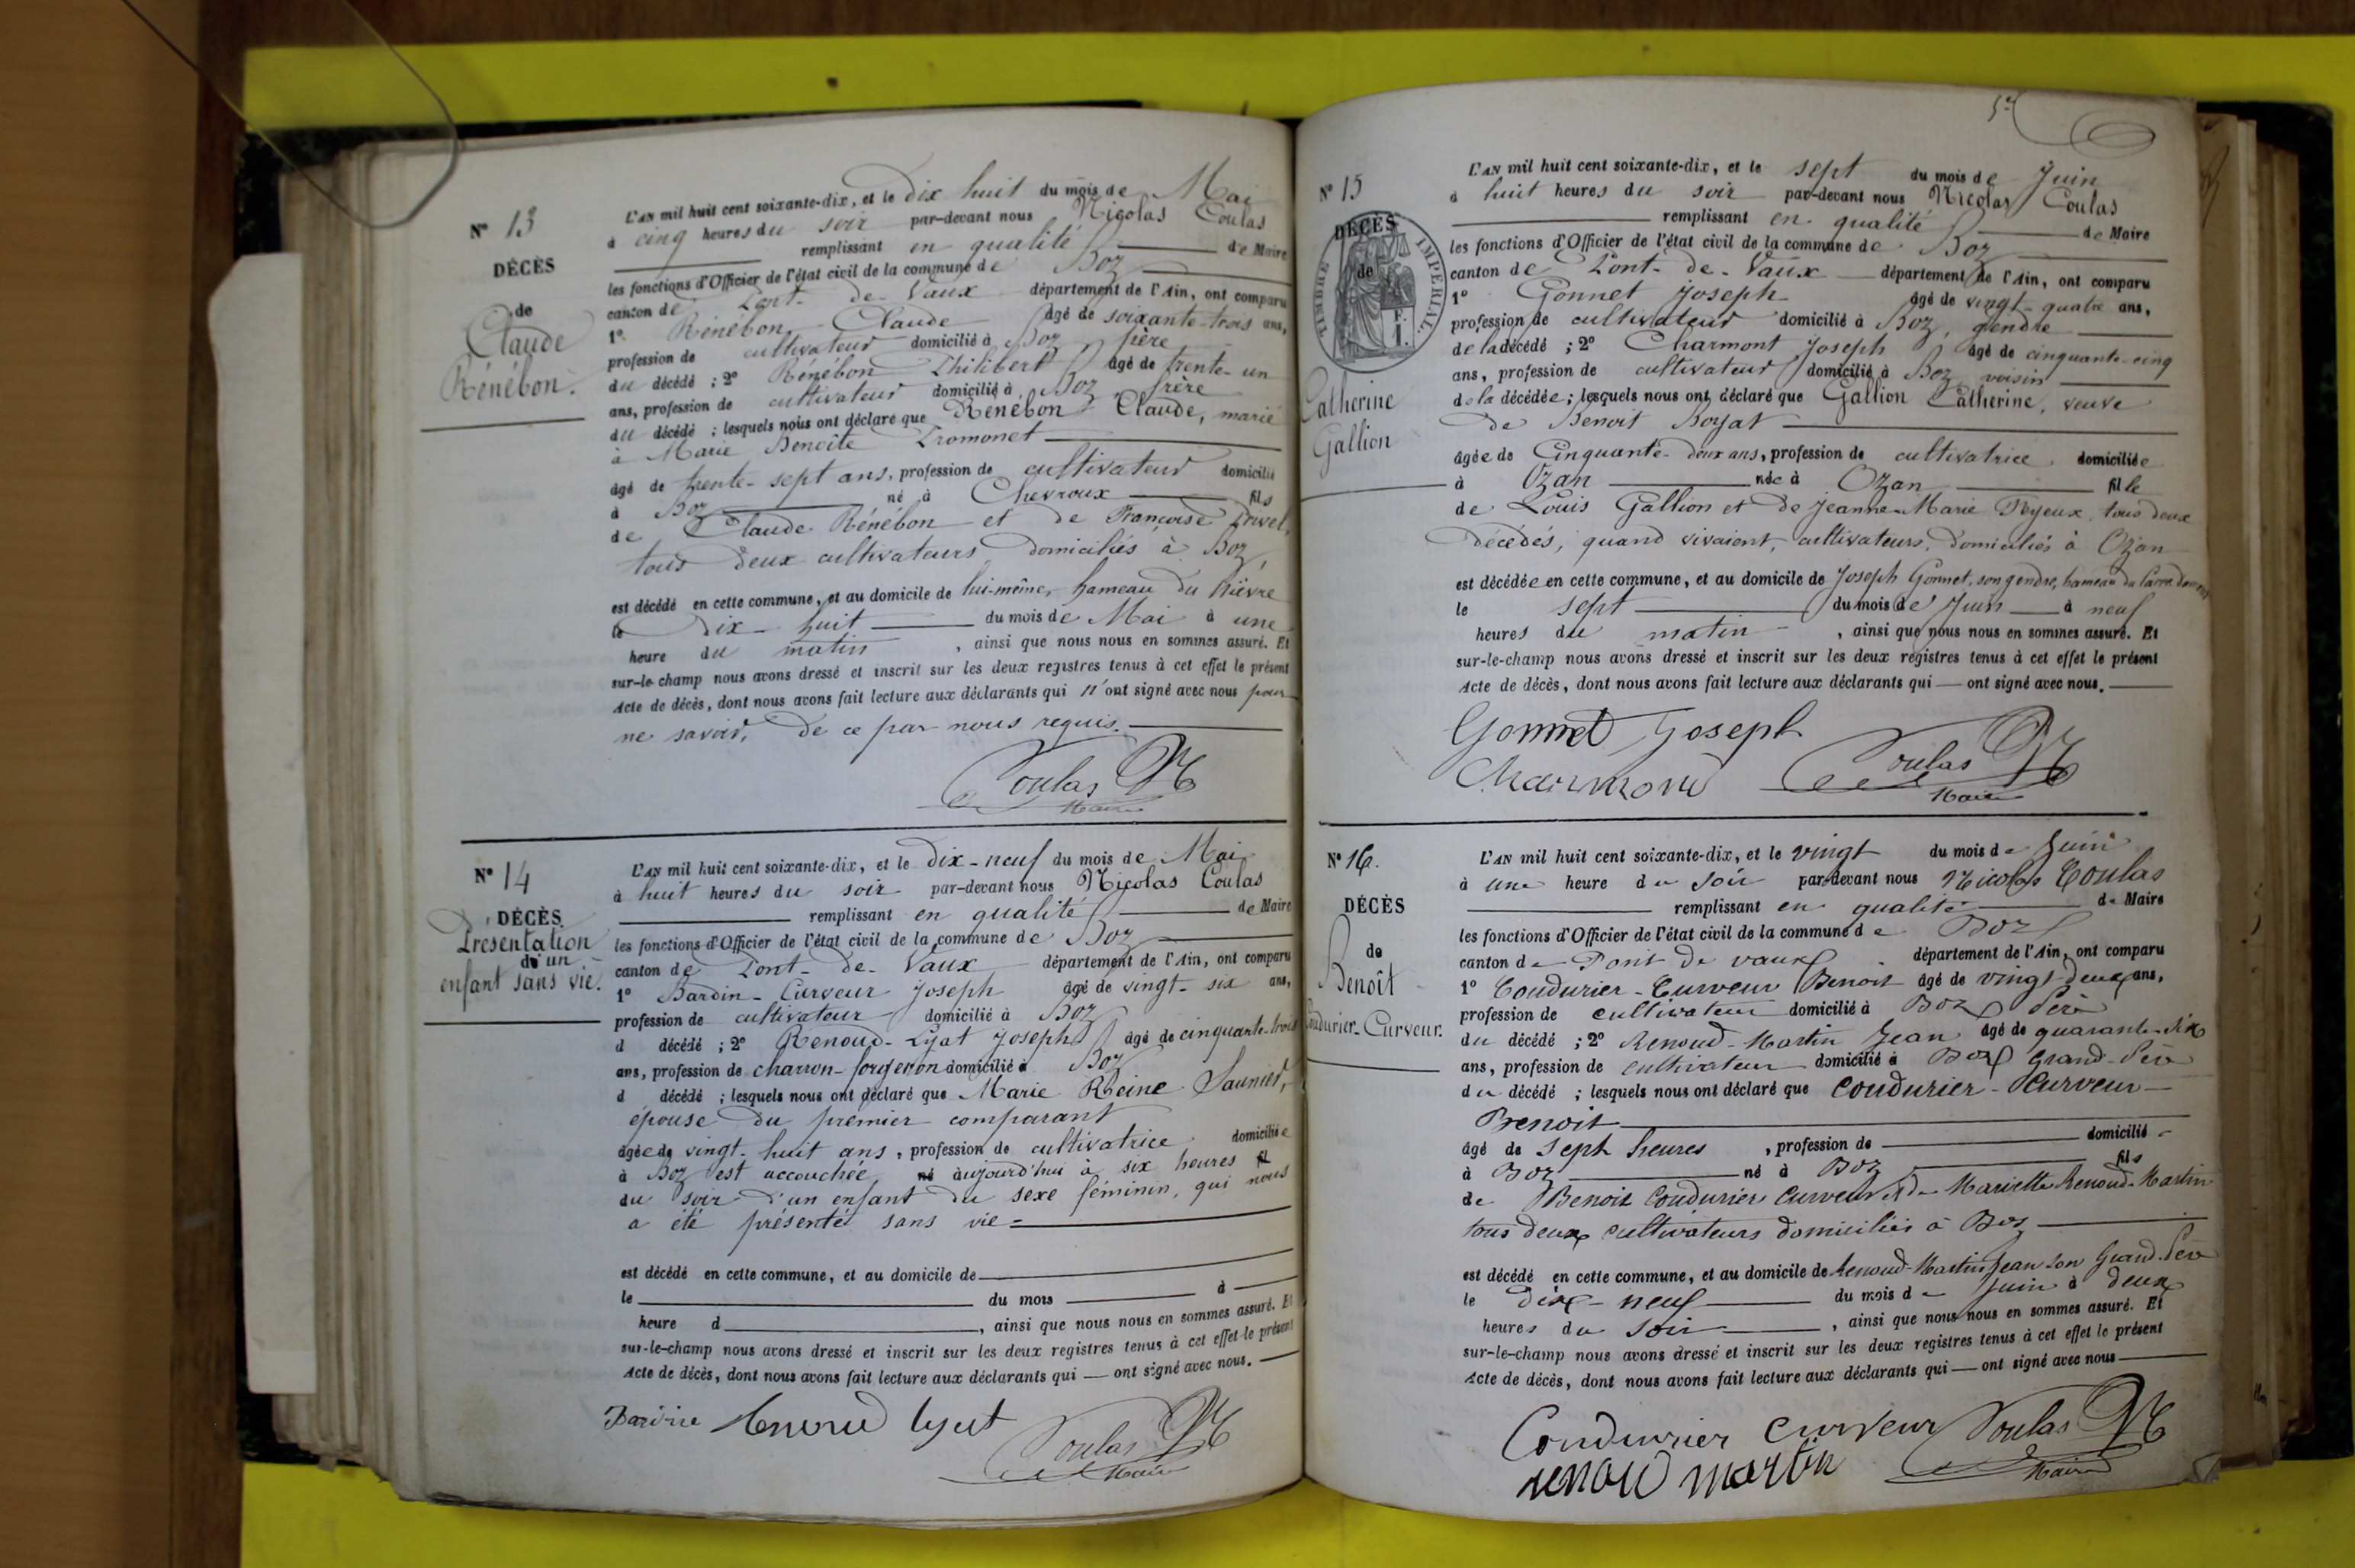 N° 13
DÉCÈS
de
Claude
Rénébon.
L'AN mil huit cent soixante-dix, et le dix huit du mois de Mai
à cinq heures du soir par-devant nous Nicolas Coulas
remplissant en qualité de Maire
les fonctions d'Officier de l'état civil de la commune de Boz
canton de Pont-de-Vaux département de l'Ain, ont comparu
1° Rénébon Claude âgé de soixante-trois ans,
profession de cultivateur domicilié à Boz père
du décédé ; 2° Rénébon Philibert âgé de trente-un
ans, profession de cultivateur domicilié à Boz frère
du décédé ; lesquels nous ont déclaré que Rénébon Claude, marié
à Marie Benoîte Promonet
âgé de trente-sept ans, profession de cultivateur domicilié
à Boz né à Chevroux fils
de Claude Rénébon et de Françoise
tous deux cultivateurs domiciliés à Boz
est décédé en cette commune, et au domicile de lui-même, hameau du
le dix-huit du mois de Mai à une
heure du matin, ainsi que nous nous en sommes assuré. Et
sur-le-champ nous avons dressé et inscrit sur les deux registres tenus à cet effet le présent
Acte de décès, dont nous avons fait lecture aux déclarants qui n'ont signé avec nous pour
ne savoir, de ce par nous requis.
Coulas N
Maire
N° 14
DÉCÈS
Présentation
d'un
enfant sans vie.
L'AN mil huit cent soixante-dix, et le dix-neuf du mois de Mai
à huit heures du soir par-devant nous Nicolas Coulas
remplissant en qualité de Maire
les fonctions d'Officier de l'état civil de la commune de Boz
canton de Pont-de-Vaux département de l'Ain, ont comparu
1° Bardin-Curveur Joseph âgé de vingt-six ans,
profession de cultivateur domicilié à Boz
d décédé ; 2° Renoud-Lyat Joseph âgé de cinquante-trois
ans, profession de charron-forgeron domicilié à Boz
d décédé ; lesquels nous ont déclaré que Marie Reine Saunier,
épouse du premier comparant
âgée de vingt-huit ans, profession de cultivatrice domiciliée
à Boz est accouchée né aujourd'hui à six heures fil
du soir d'un enfant du sexe féminin, qui nous
a été présenté sans vie
est décédé en cette commune, et au domicile de
le du mois à
heure d , ainsi que nous nous en sommes assuré. Et
sur-le-champ nous avons dressé et inscrit sur les deux registres tenus à cet effet le présent
Acte de décès, dont nous avons fait lecture aux déclarants qui — ont signé avec nous.
Renoud lyat
Coulas N
Maire
N° 15
DÉCÈS
de
TIMBRE IMPÉRIAL
Catherine
Gallion
L'AN mil huit cent soixante-dix, et le sept du mois de Juin
à huit heures du soir par-devant nous Nicolas Coulas
remplissant en qualité de Maire
les fonctions d'Officier de l'état civil de la commune de Boz
canton de Pont-de-Vaux département de l'Ain, ont comparu
1° Gonnet Joseph âgé de vingt-quatre ans,
profession de cultivateur domicilié à Boz, gendre
de la décédé ; 2° Charmont Joseph âgé de cinquante-cinq
ans, profession de cultivateur domicilié à Boz voisin
de la décédée ; lesquels nous ont déclaré que Gallion Catherine, veuve
de Benoit Boyat
âgée de Cinquante-deux ans, profession de cultivatrice domiciliée
à Ozan née à Ozan fille
de Louis Gallion et de Jeanne-Marie tous deux
décédés, quand vivaient, cultivateurs, domiciliés à Ozan
est décédée en cette commune, et au domicile de Joseph Gonnet, son gendre, hameau du
le sept du mois de Juin à neuf
heures du matin, ainsi que nous nous en sommes assuré. Et
sur-le-champ nous avons dressé et inscrit sur les deux registres tenus à cet effet le présent
Acte de décès, dont nous avons fait lecture aux déclarants qui — ont signé avec nous.
Gonnet Joseph
Charmont
Coulas N
Maire
N° 16.
DÉCÈS
de
Benoît
Coudurier-Curveur.
L'AN mil huit cent soixante-dix, et le vingt du mois de Juin
à une heure du soir par-devant nous Nicolas Coulas
remplissant en qualité de Maire
les fonctions d'Officier de l'état civil de la commune de Boz
canton de Pont de vaux département de l'Ain, ont comparu
1° Coudurier-Curveur Benoit âgé de vingt-deux ans,
profession de cultivateur domicilié à Boz Père
du décédé ; 2° Renoud-Martin Jean âgé de quarante-six
ans, profession de cultivateur domicilié à Boz Grand-Père
du décédé ; lesquels nous ont déclaré que Coudurier-Curveur
Benoit
âgé de sept heures, profession de domicilié
à Boz né à Boz fils
de Benoit Coudurier Curveur et de Mariette Renoud-Martin
tous deux cultivateurs domiciliés à Boz
est décédé en cette commune, et au domicile de Renoud-Martin Jean son Grand-Père
le dix-neuf du mois de Juin à deux
heures du soir, ainsi que nous nous en sommes assuré. Et
sur-le-champ nous avons dressé et inscrit sur les deux registres tenus à cet effet le présent
Acte de décès, dont nous avons fait lecture aux déclarants qui — ont signé avec nous
Coudurier Curveur
renoud martin
Coulas N
Maire